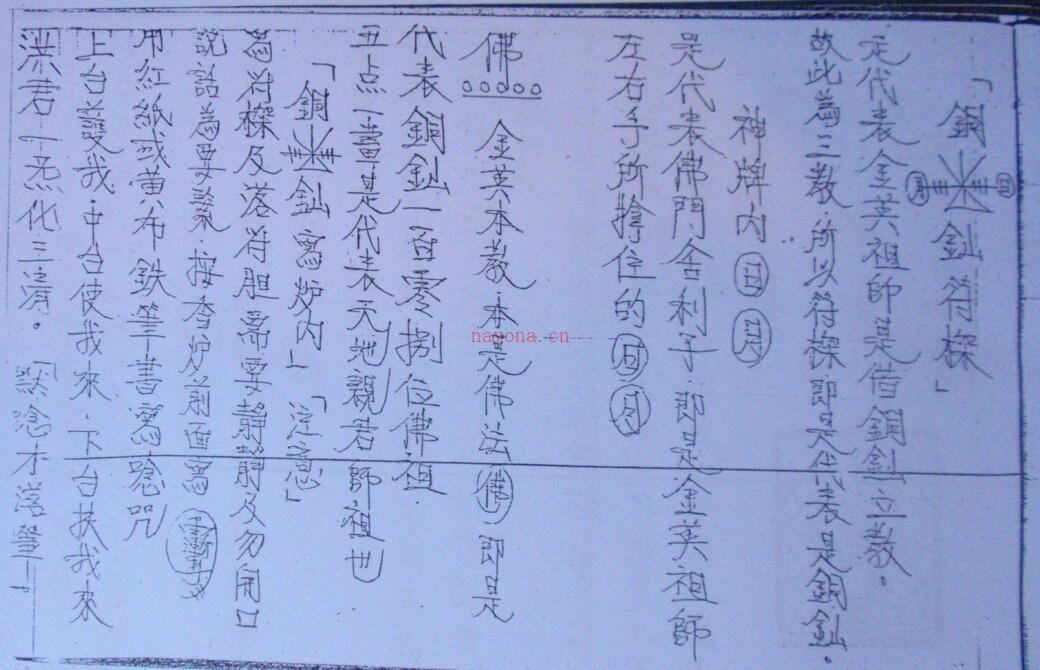 「銅 釖符樑」
日
月
定代表金英祖師是借銅釖立教.
故此為三教.所以符樑即是代表是銅釖.
神牌內 日 月
是代表佛門舍利子.即是金英祖師
左右手所揸住的 日 月
佛 金英本教.本是佛法 佛.即是
代表銅釖一百零捌位佛祖
五点一畫是代表天地親君師祖也
「銅 釖寫炉內」「注意」
寫符樑及落符胆需要靜靜及勿開口
說話為要緊.按香炉前面寫
用紅紙或黄布鉄筆書寫唸咒
上台發我.中台使我來.下台扶我來
洪君一炁化三清. 唸 才落筆
nayona.cn